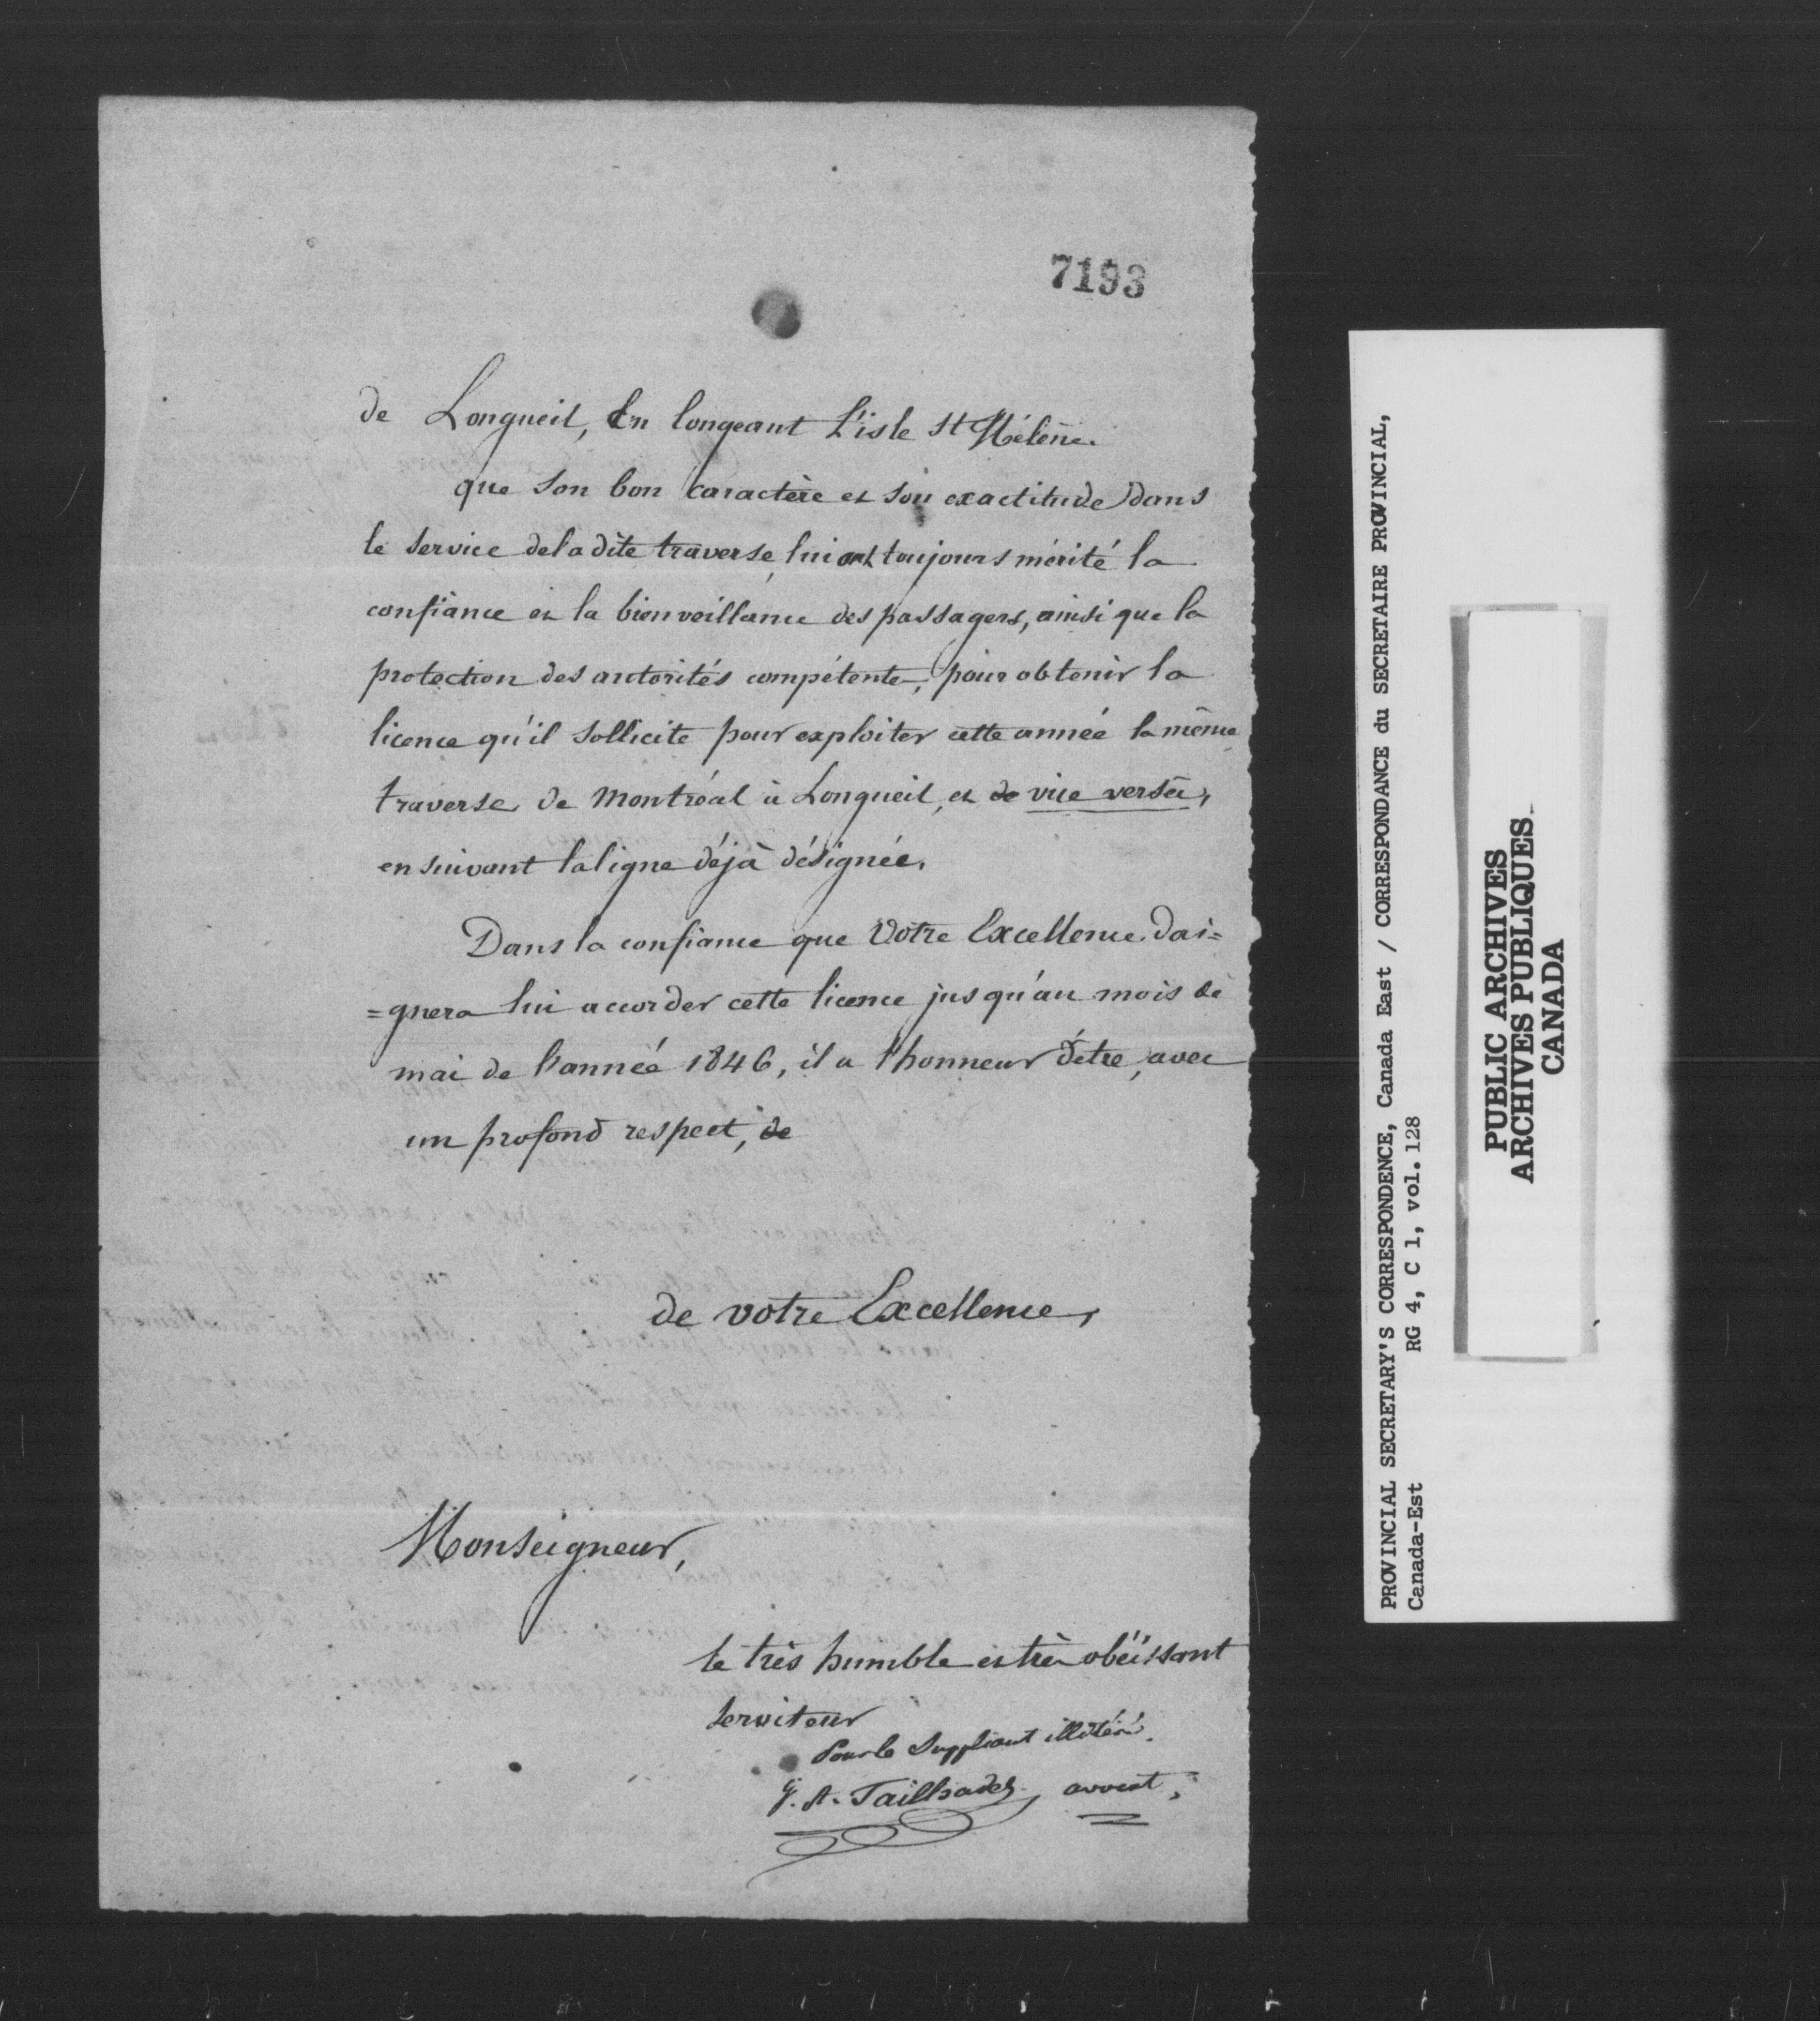 7193
de Longueil, En longeant L'isle St Hélène.
que son bon caractère et son exactitude dans
le service de la dite traverse, lui ont toujours mérité la
confiance et la bienveillance des passagers, ainsi que la
protection des autorités compétentes, pour obtenir la
licence qu'il sollicite pour exploiter cette année la même
traverse, de Montréal à Longueil, et de vice versâ,
en suivant la ligne déjà désignée.
Dans la confiance que Votre Excellence dai=
=gnera lui accorder cette licence jusqu'au mois de
mai de l'année 1846, il a l'honneur d'être, avec
un profond respect, de
de votre Excellence,
Monseigneur,
le très humble et très obéissant
serviteur
Pour le Suppliant illitéré.
G. A. Tailhades, avocat,
PROVINCIAL SECRETARY'S CORRESPONDENCE, Canada East / CORRESPONDANCE du SECRETAIRE PROVINCIAL,
Canada-Est RG 4, C 1, vol. 128
PUBLIC ARCHIVES
ARCHIVES PUBLIQUES
CANADA